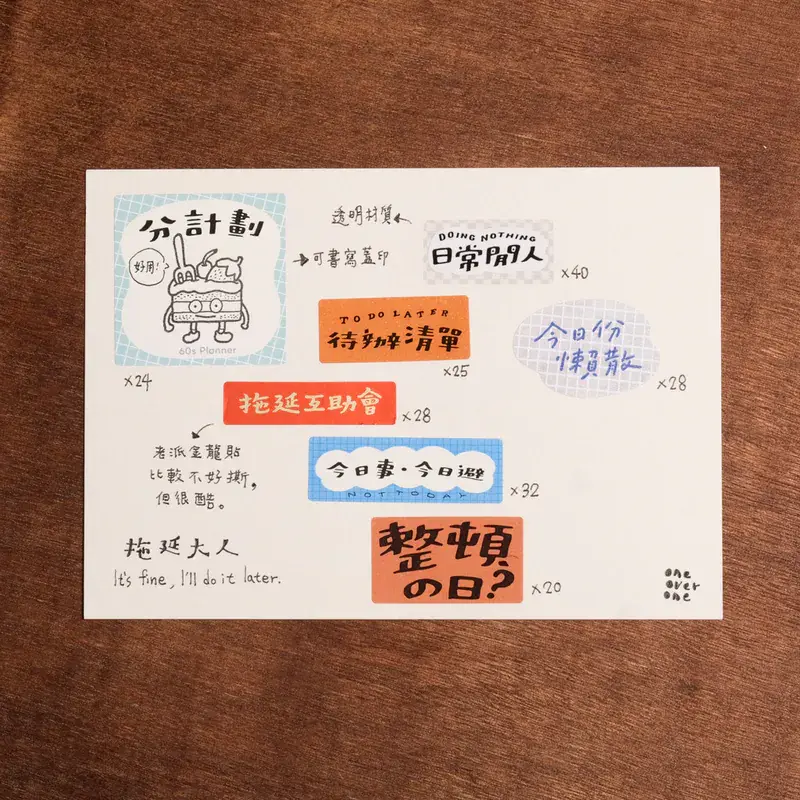 分計劃
好用!
60s Planner
x24
透明材質
可書寫蓋印
DOING NOTHING
日常閒人
x40
TO DO LATER
待辦清單
x25
今日份
懶散
x28
拖延互助會
x28
老派金龍貼
比較不好撕,
但很酷。
今日事·今日避
NOT TODAY
x32
拖延大人
It's fine, I'll do it later.
整頓
の日?
x20
one
over
one